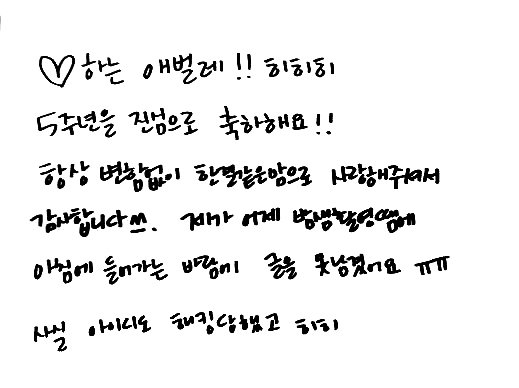 ♡하는 애벌레!! 히히히
5주년을 진심으로 축하해요!!
항상 변함없이 한결같은맘으로 사랑해주셔서
감사합니다쓰. 제가 어제 밤샘촬영땜에
아침에 들어가는 바람에 글을 못남겼어요 ㅠㅠ
사실 아이디도 해킹당했고 히히